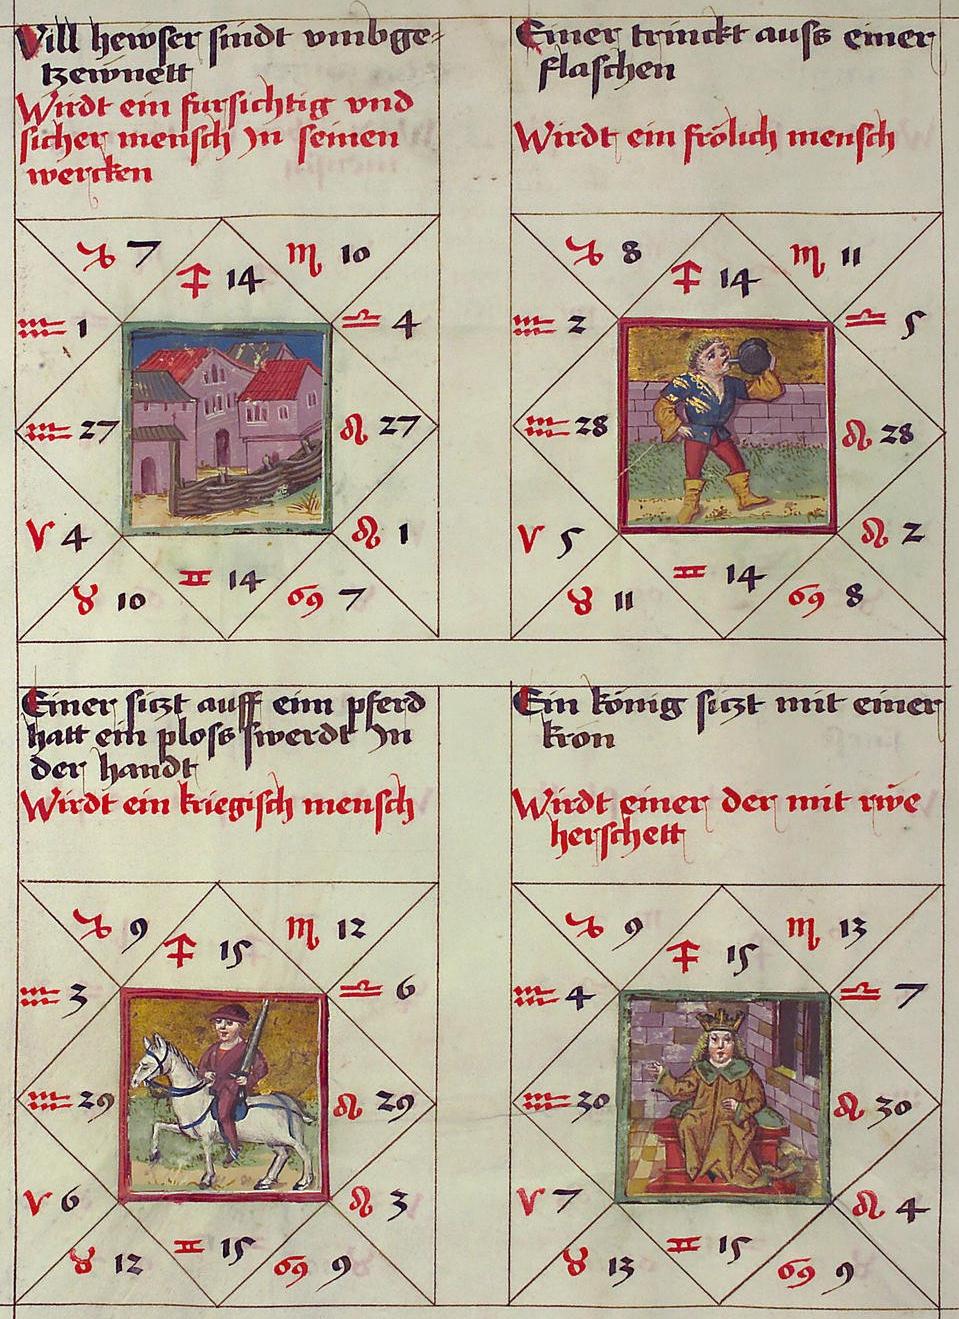 Vill hewser sindt vmbge-
tzewnett
Wirdt ein fursichtig vnd
sicher mensch Jn seinen
wercken
♑ 7
♐ 14
♏ 10
♒ 1
♎ 4
♒ 27
♌ 27
♈ 4
♌ 1
♉ 10
♊ 14
♋ 7
Einer trinckt auss einer
flaschen
Wirdt ein frölich mensch
♑ 8
♐ 14
♏ 11
♒ 2
♎ 5
♒ 28
♌ 28
♈ 5
♌ 2
♉ 11
♊ 14
♋ 8
Einer siczt auff eim pferd
hatt ein ploss swerdt Jn
der handt
Wirdt ein kriegisch mensch
♑ 9
♐ 15
♏ 12
♒ 3
♎ 6
♒ 29
♌ 29
♈ 6
♌ 3
♉ 12
♊ 15
♋ 9
Ein könig siczt mit einer
kron
Wirdt einer der mit rwe
herschett
♑ 9
♐ 15
♏ 13
♒ 4
♎ 7
♒ 30
♌ 30
♈ 7
♌ 4
♉ 13
♊ 15
♋ 9